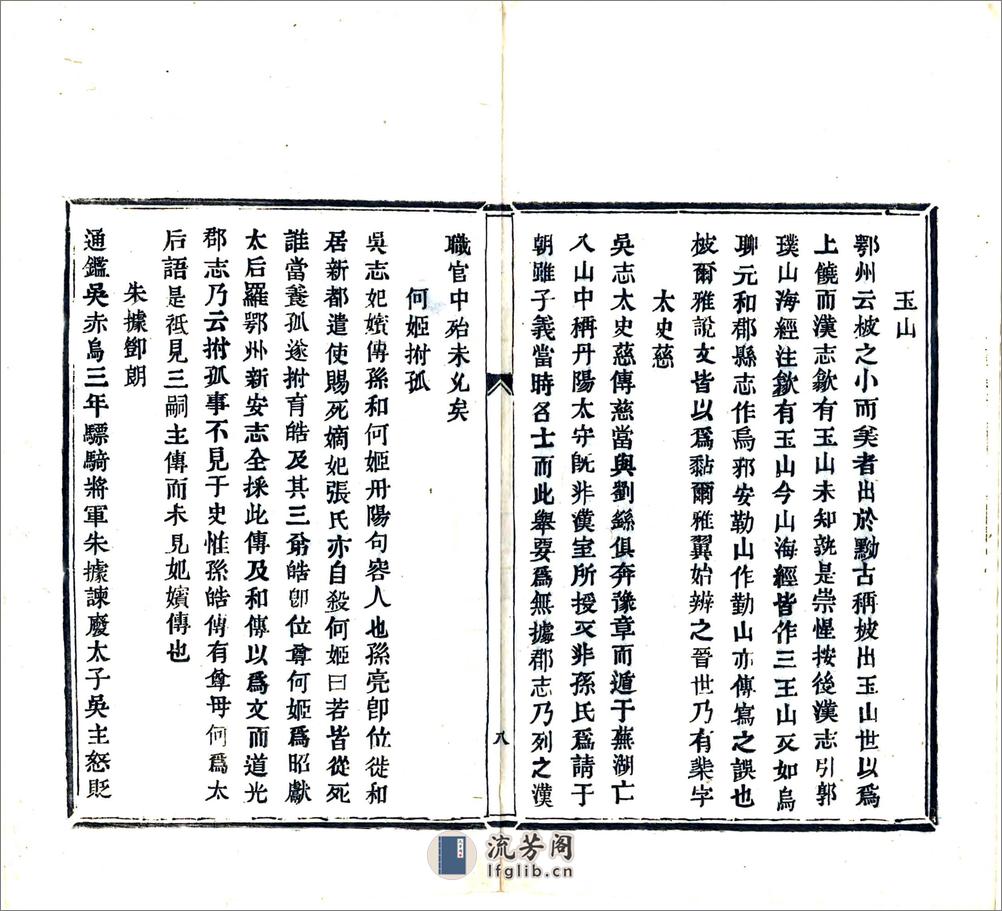 玉山
鄂州云柀之小而美者出於黝古稱柀出玉山世以爲
上饒而漢志歙有玉山未知孰是崇惺按後漢志引郭
璞山海經注歙有玉山今山海經皆作三王山又如烏
聊元和郡縣志作烏邪安勒山作勤山亦傳寫之誤也
柀爾雅說文皆以爲黏爾雅翼始辨之晉世乃有棐字
太史慈
吳志太史慈傳慈當與劉繇俱奔豫章而遁于蕪湖亡
入山中稱丹陽太守旣非漢室所授又非孫氏爲請于
朝雖子義當時名士而此舉要爲無據郡志乃列之漢
職官中殆未允矣
何姬拊孤
吳志妃嬪傳孫和何姬丹陽句容人也孫亮卽位徙和
居新都遣使賜死嫡妃張氏亦自殺何姬曰若皆從死
誰當養孤遂拊育皓及其三弟皓卽位尊何姬爲昭獻
太后羅鄂州新安志全採此傳及和傳以爲文而道光
郡志乃云拊孤事不見于史惟孫皓傳有尊母何爲太
后語是祇見三嗣主傳而未見妃嬪傳也
朱據鄧朗
通鑑吳赤烏三年驃騎將軍朱據諫廢太子吳主怒貶
八
流芳阁
lfglib.cn